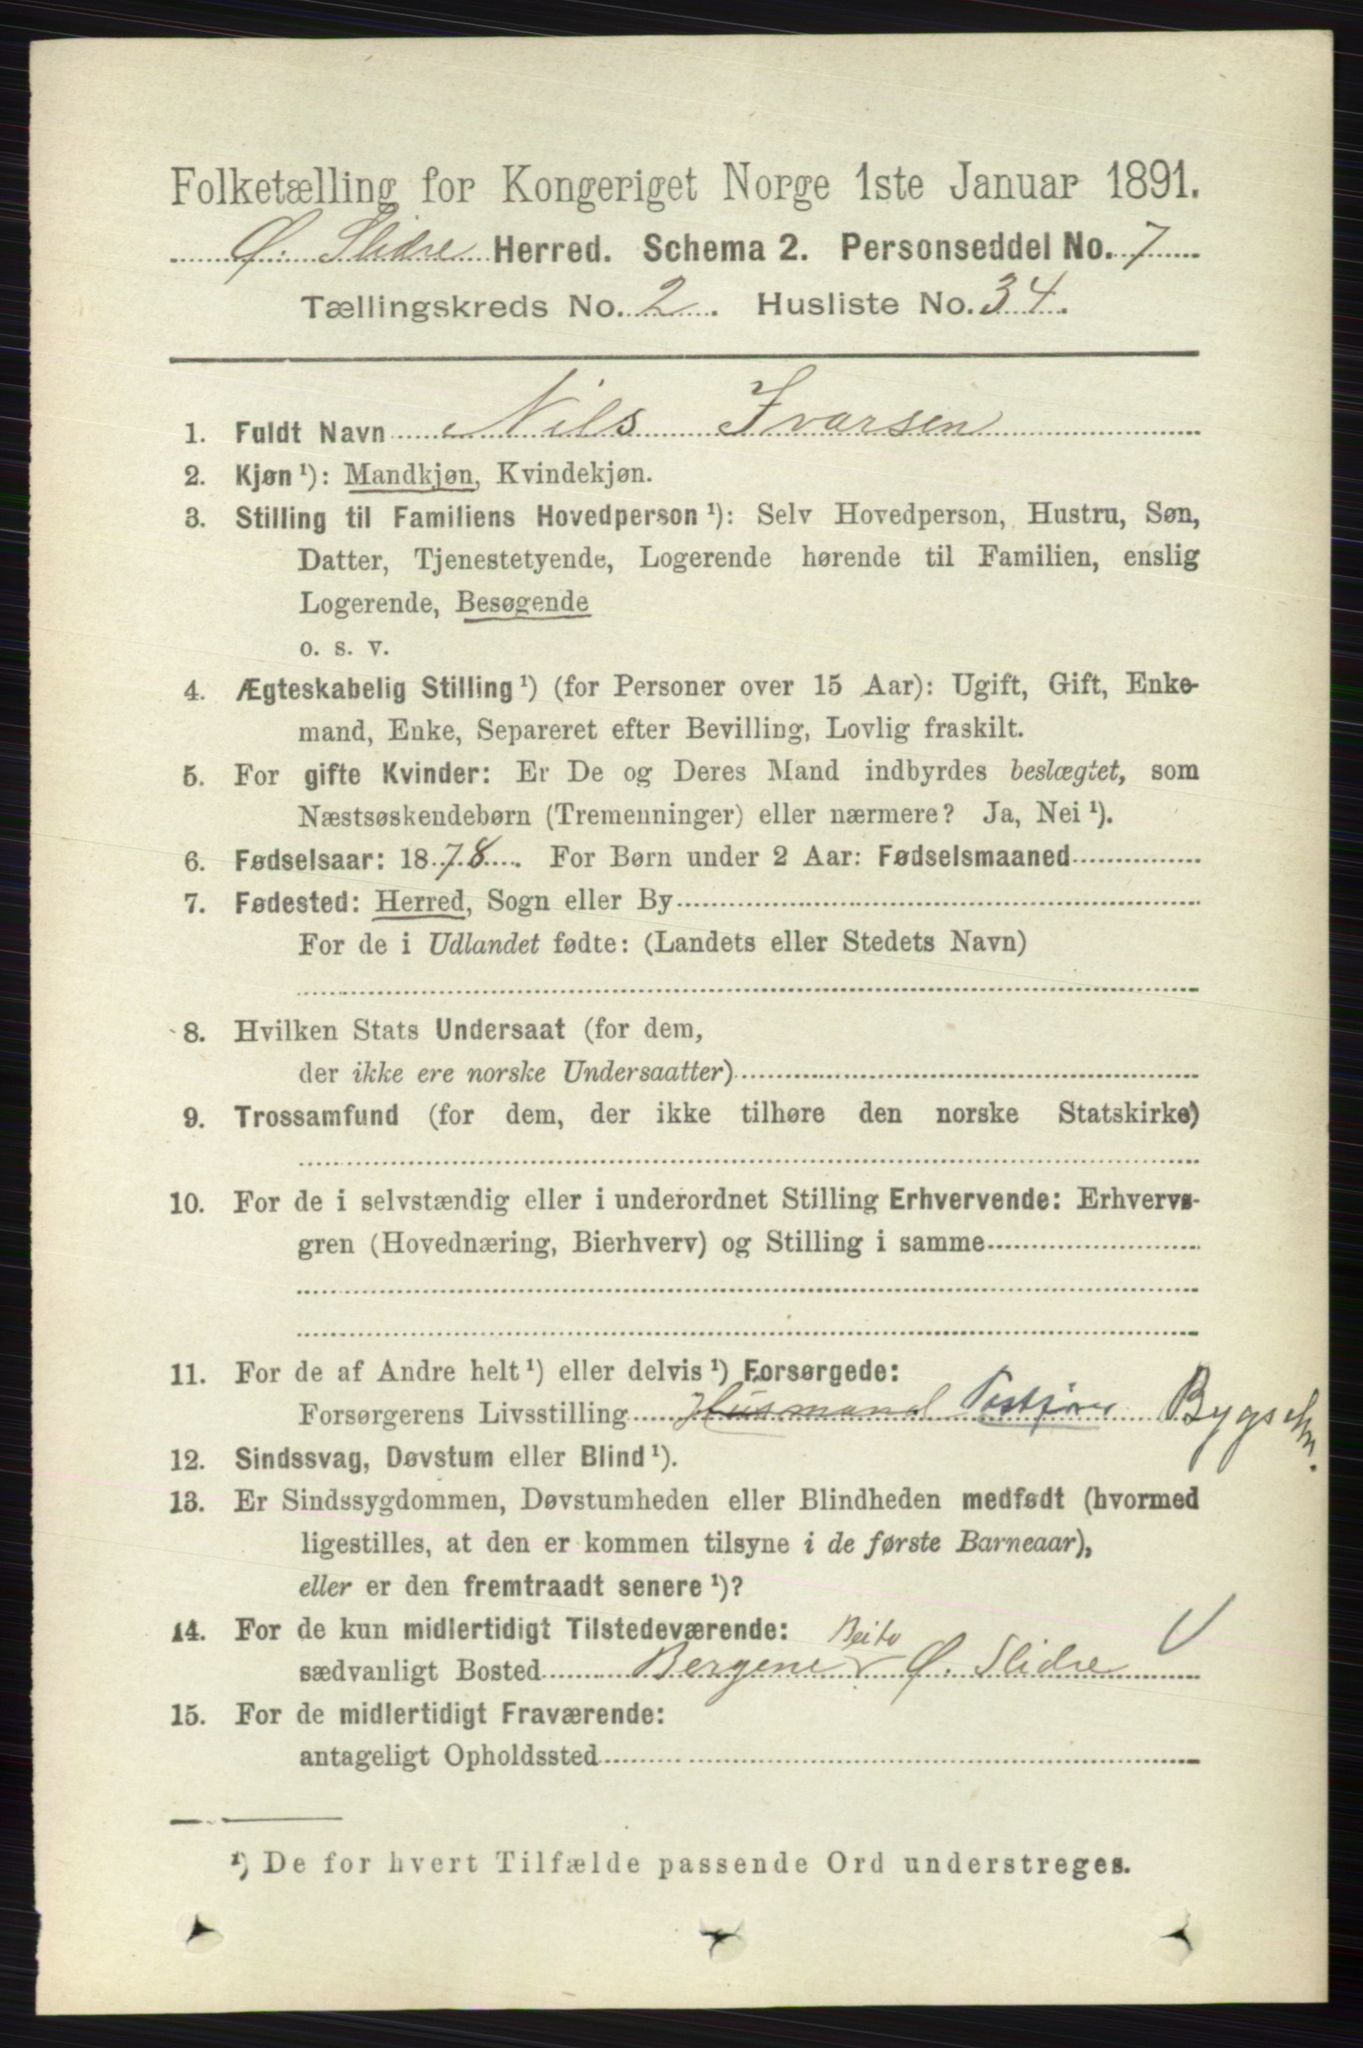 Folketælling for Kongeriget Norge 1ste Januar 1891.
Ø. Slidre Herred. Schema 2. Personseddel No. 7
Tællingskreds No. 2. Husliste No. 34.
1. Fuldt Navn Nils Ivarsen
2. Kjøn ¹): Mandkjøn, Kvindekjøn.
3. Stilling til Familiens Hovedperson ¹): Selv Hovedperson, Hustru, Søn,
Datter, Tjenestetyende, Logerende hørende til Familien, enslig
Logerende, Besøgende
o. s. v.
4. Ægteskabelig Stilling ¹) (for Personer over 15 Aar): Ugift, Gift, Enke-
mand, Enke, Separeret efter Bevilling, Lovlig fraskilt.
5. For gifte Kvinder: Er De og Deres Mand indbyrdes beslægtet, som
Næstsøskendebørn (Tremenninger) eller nærmere? Ja, Nei ¹).
6. Fødselsaar: 1878. For Børn under 2 Aar: Fødselsmaaned
7. Fødested: Herred, Sogn eller By
For de i Udlandet fødte: (Landets eller Stedets Navn)
8. Hvilken Stats Undersaat (for dem,
der ikke ere norske Undersaatter)
9. Trossamfund (for dem, der ikke tilhøre den norske Statskirke)
10. For de i selvstændig eller i underordnet Stilling Erhvervende: Erhvervs-
gren (Hovednæring, Bierhverv) og Stilling i samme
11. For de af Andre helt ¹) eller delvis ¹) Forsørgede:
Forsørgerens Livsstilling Husmand Bygselm.
12. Sindssvag, Døvstum eller Blind ¹).
13. Er Sindssygdommen, Døvstumheden eller Blindheden medfødt (hvormed
ligestilles, at den er kommen tilsyne i de første Barneaar),
eller er den fremtraadt senere ¹)?
14. For de kun midlertidigt Tilstedeværende:
Beito
sædvanligt Bosted Bergene Ø. Slidre
15. For de midlertidigt Fraværende:
antageligt Opholdssted
¹) De for hvert Tilfælde passende Ord understreges.